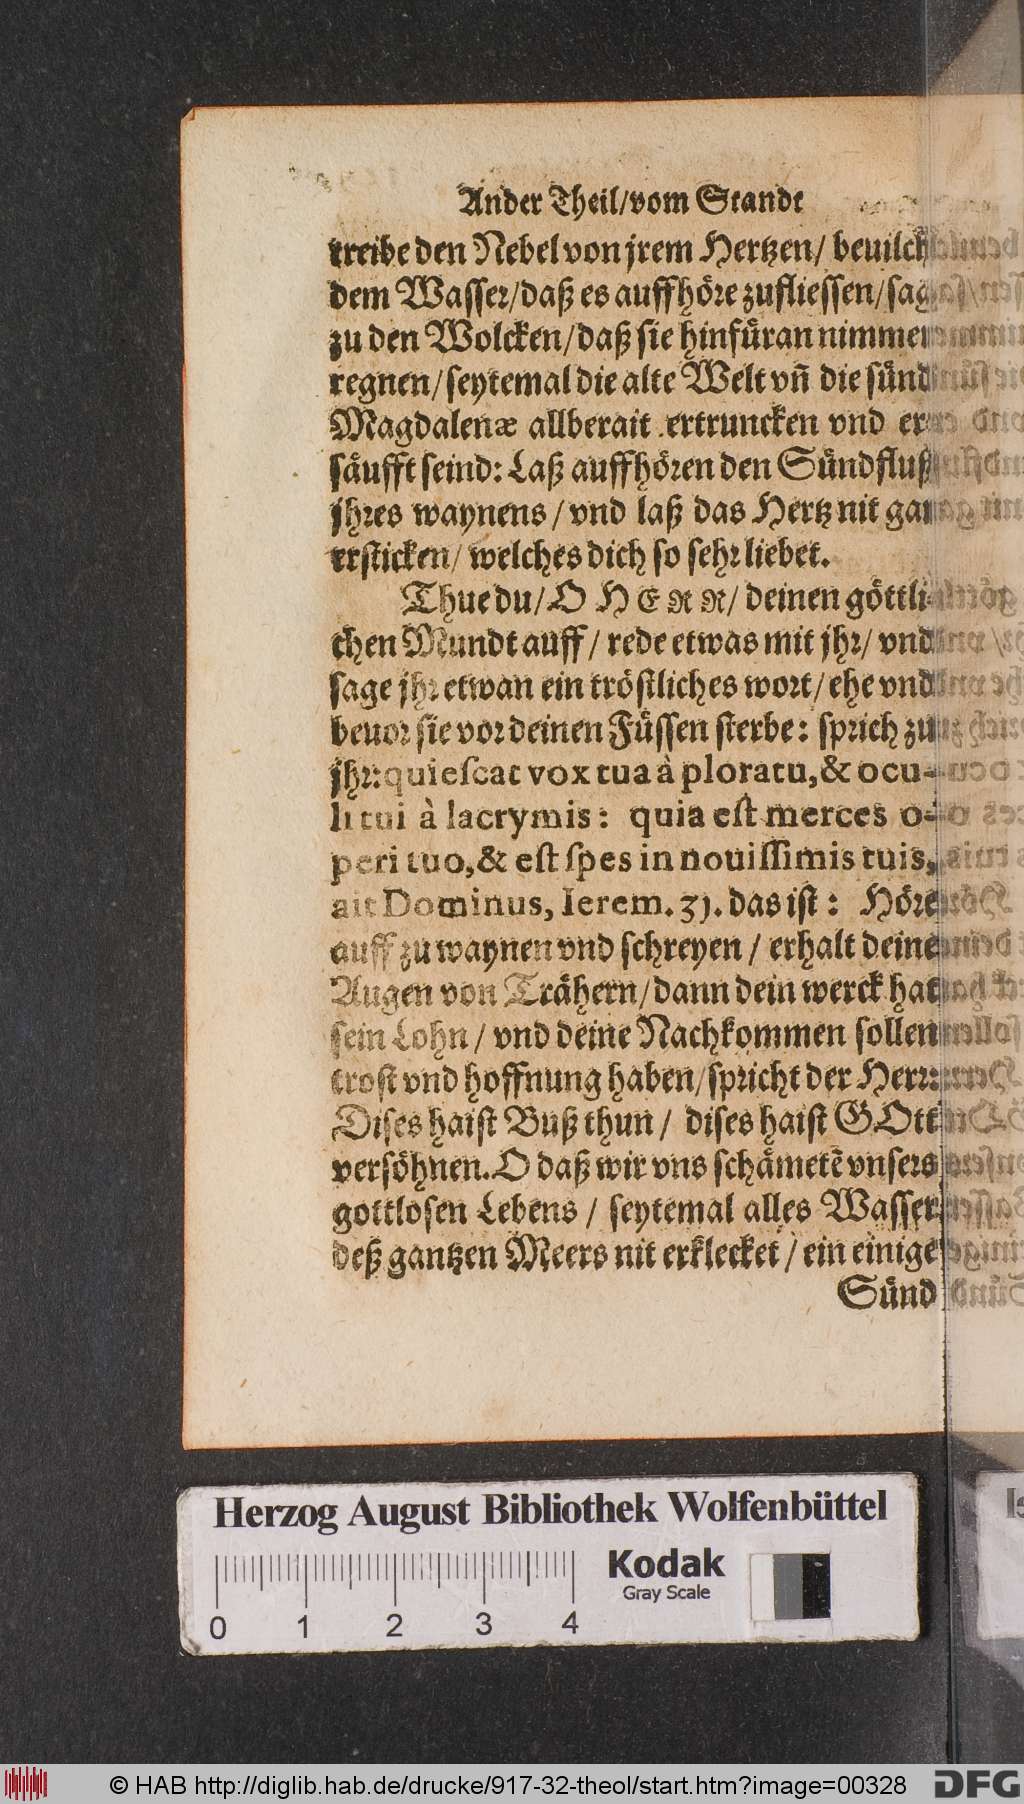 Ander Theil/vom Standt
treibe den Nebel von jrem Hertzen/ beuilch
dem Wasser/daß es auffhöre zufliessen/sag
zu den Wolcken/daß sie hinfüran nimmer
regnen/seytemal die alte Welt vñ die sünd
Magdalenæ allberait ertruncken vnd er-
säufft seind: Laß auffhören den Sündfluß
jhres waynens/vnd laß das Hertz nit gar
ersticken/ welches dich so sehr liebet.
Thue du/O HERR/deinen göttli-
chen Mundt auff/ rede etwas mit jhr/ vnd
sage jhr etwan ein tröstliches wort/ehe vnd
beuor sie vor deinen Füssen sterbe: sprich zu
jhr: quiescat vox tua à ploratu, & ocu-
li tui à lacrymis: quia est merces o-
peri tuo, & est spes in nouissimis tuis,
ait Dominus, Ierem. 31. das ist: Höre
auff zu waynen vnd schreyen/ erhalt deine
Augen von Trähern/dann dein werck hat
sein Lohn/ vnd deine Nachkommen sollen
trost vnd hoffnung haben/spricht der Herr:
Dises haist Buß thun/ dises haist GOtt
versöhnen. O daß wir vns schämetẽ vnsers
gottlosen Lebens/ seytemal alles Wasser
deß gantzen Meers nit erklecket/ein einige
Sünd
Herzog August Bibliothek Wolfenbüttel
Kodak
Gray Scale
0 1 2 3 4
© HAB http://diglib.hab.de/drucke/917-32-theol/start.htm?image=00328
DFG